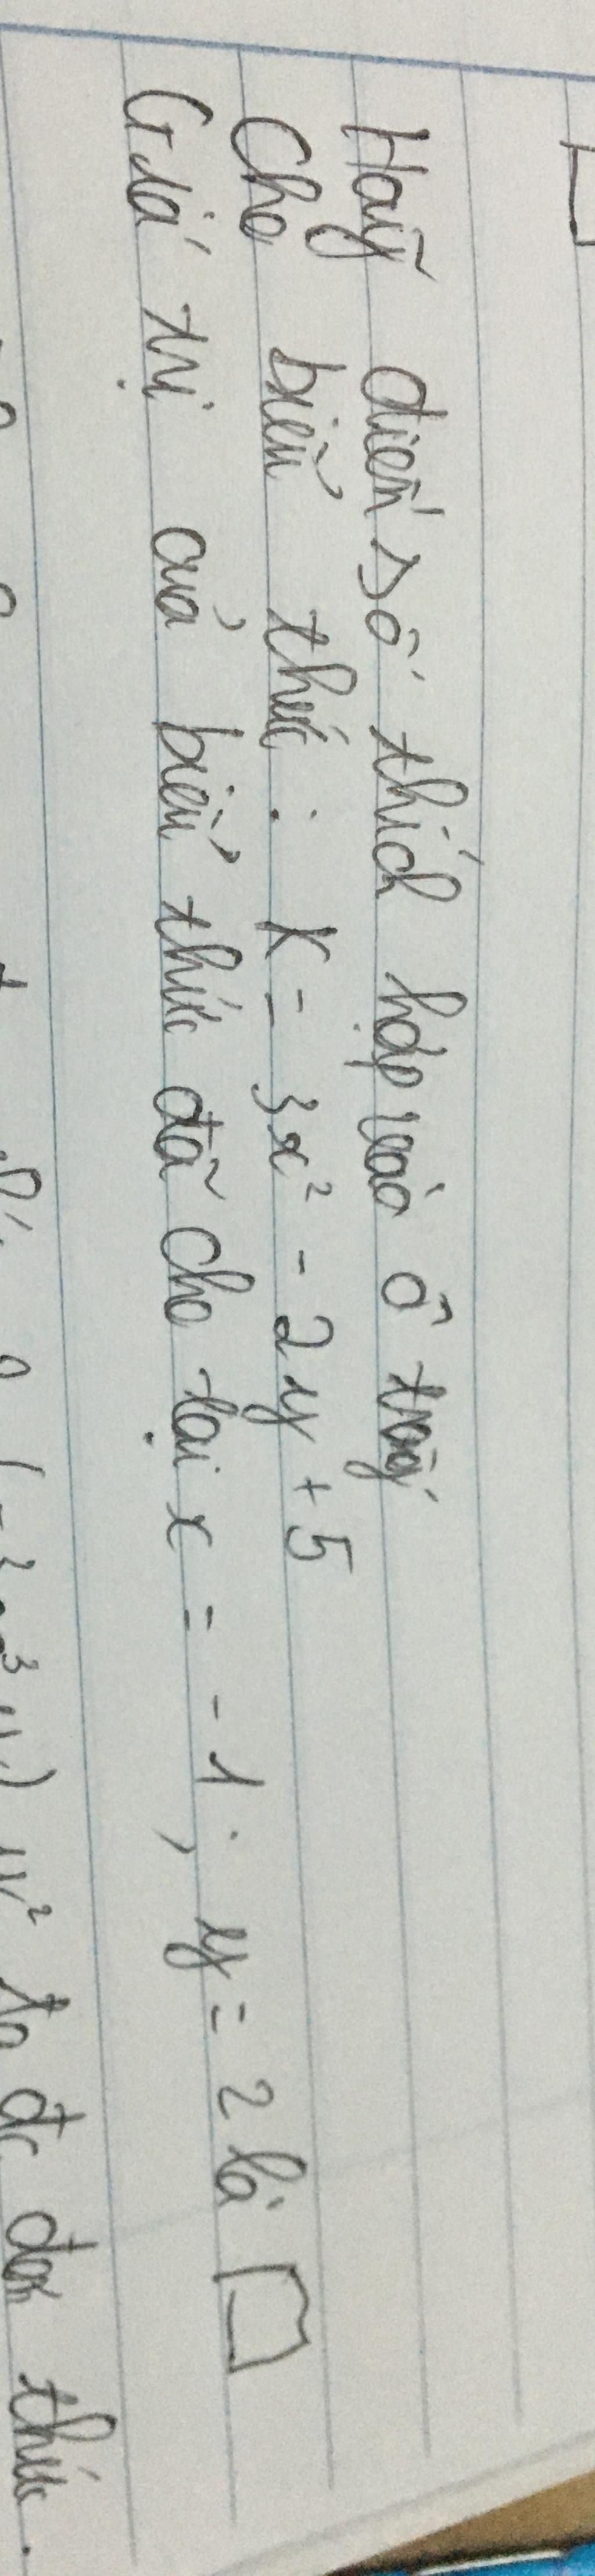 Hãy điền số thích hợp vào ô trống
Cho biểu thức : K = 3x² - 2y + 5
Giá trị của biểu thức đã cho tại x = -1 ; y = 2 là
y² ta đc đơn thức.